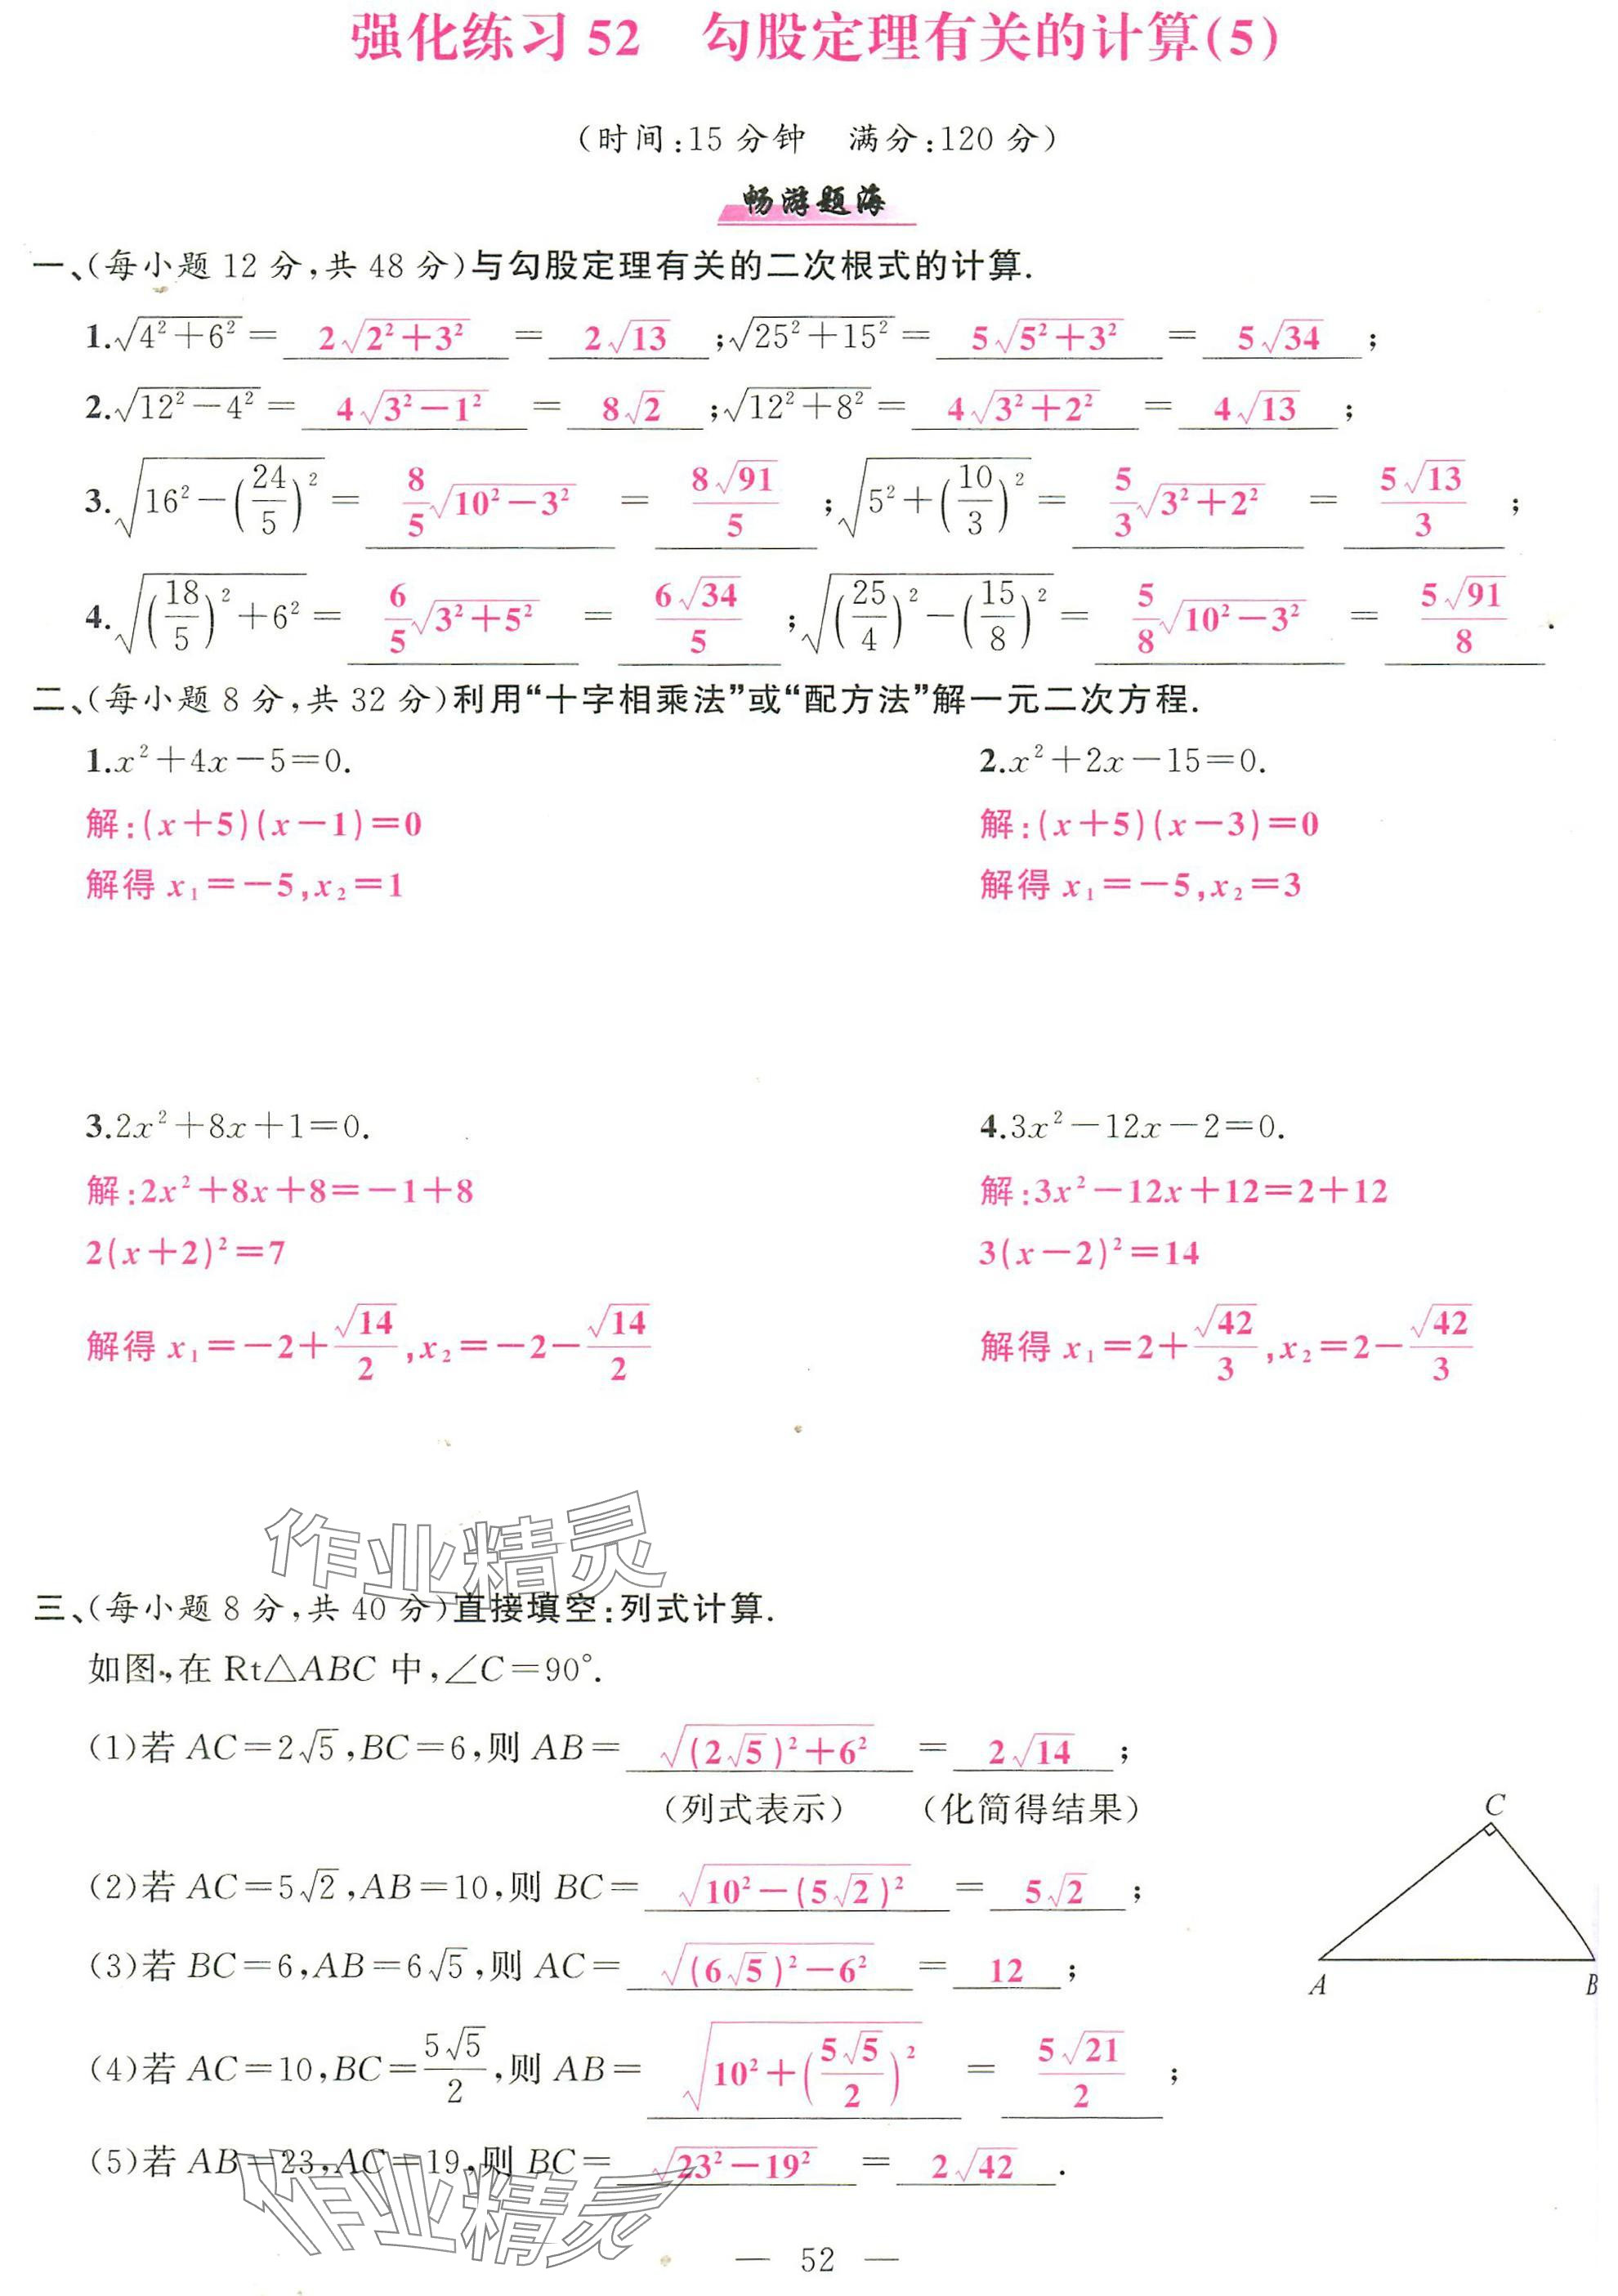 强化练习 52　勾股定理有关的计算(5)
(时间:15 分钟　满分:120 分)
畅游题海
一、(每小题 12 分,共 48 分)与勾股定理有关的二次根式的计算.
1.√(4²+6²)= 2√(2²+3²) = 2√13 ;√(25²+15²)= 5√(5²+3²) = 5√34 ;
2.√(12²-4²)= 4√(3²-1²) = 8√2 ;√(12²+8²)= 4√(3²+2²) = 4√13 ;
3.√(16²-(24/5)²)= 8/5√(10²-3²) = 8√91/5 ;√(5²+(10/3)²)= 5/3√(3²+2²) = 5√13/3 ;
4.√((18/5)²+6²)= 6/5√(3²+5²) = 6√34/5 ;√((25/4)²-(15/8)²)= 5/8√(10²-3²) = 5√91/8 .
二、(每小题 8 分,共 32 分)利用“十字相乘法”或“配方法”解一元二次方程.
1.x²+4x-5=0.　2.x²+2x-15=0.
解:(x+5)(x-1)=0　解:(x+5)(x-3)=0
解得 x₁=-5,x₂=1　解得 x₁=-5,x₂=3
3.2x²+8x+1=0.　4.3x²-12x-2=0.
解:2x²+8x+8=-1+8　解:3x²-12x+12=2+12
2(x+2)²=7　3(x-2)²=14
解得 x₁=-2+√14/2,x₂=-2-√14/2　解得 x₁=2+√42/3,x₂=2-√42/3
作业精灵
三、(每小题 8 分,共 40 分)直接填空:列式计算.
如图,在 Rt△ABC 中,∠C=90°.
(1)若 AC=2√5,BC=6,则 AB= √((2√5)²+6²) = 2√14 ;
(列式表示)　(化简得结果)
(2)若 AC=5√2,AB=10,则 BC= √(10²-(5√2)²) = 5√2 ;
(3)若 BC=6,AB=6√5,则 AC= √((6√5)²-6²) = 12 ;
(4)若 AC=10,BC=5√5/2,则 AB= √(10²+(5√5/2)²) = 5√21/2 ;
(5)若 AB=23,AC=19,则 BC= √(23²-19²) = 2√42 .
C
A
B
作业精灵
— 52 —